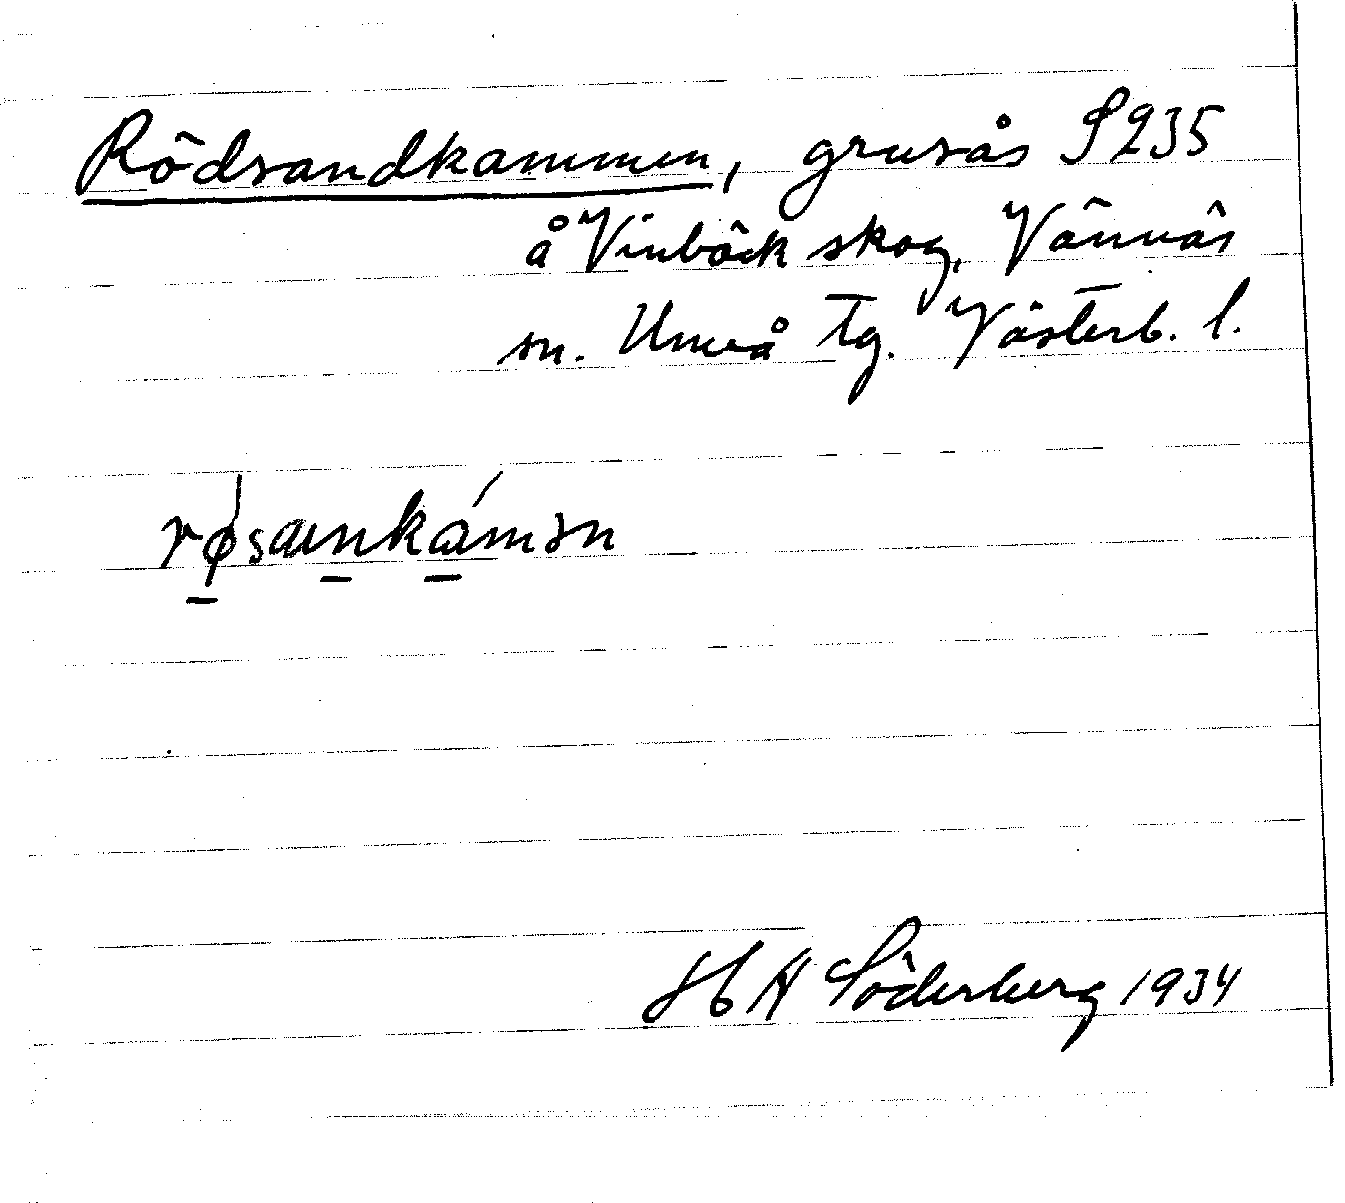 Rödsandkammen, grusås S235
å Vinbäck skog, Vännäs
sn. Umeå tg. Västerb. l.
røsankámən
H A Söderberg 1934